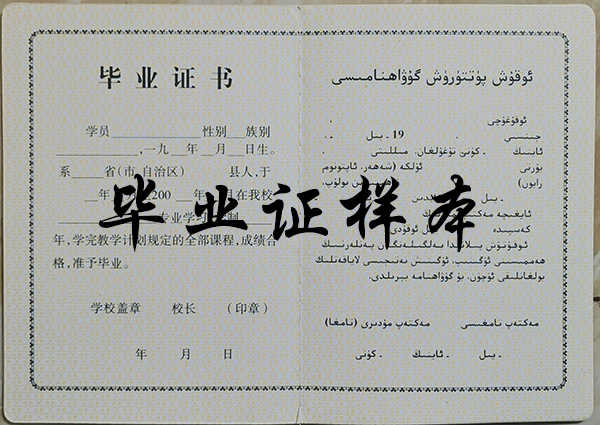 毕业证书
学员 性别 族别
,一九 年 月 日生。
系 省(市、自治区) 县人,于
年 200 年 月在我校
专业学习 制
年,学完教学计划规定的全部课程,成绩合
格,准予毕业。
学校盖章 校长 (印章)
年 月 日
ئوقۇش پۈتتۈرۈش گۇۋاھنامىسى
ئوقۇغۇچى .
جىنسى . 19 ـ يىل . ـ
ئاينىڭ ـ كۈنى تۇغۇلغان. مىللىتى .
يۇرتى ئۆلكە (شەھەر، ئاپتونوم
رايون) بولۇپ،
ـ يىل
ئايغىچە مەكتەپ
كەسپىدە ئوقۇدى.
ئوقۇتۇش پىلانىدا بەلگىلەنگەن پەنلەرنىڭ
ھەممىسىنى ئۆگىنىپ، ئۆگىنىش نەتىجىسى لاياقەتلىك
بولغانلىقى ئۈچۈن، بۇ گۇۋاھنامە بېرىلدى.
مەكتەپ تامغىسى مەكتەپ مۇدىرى (تامغا)
ـ يىل ـ ئاينىڭ ـ كۈنى
毕业证样本